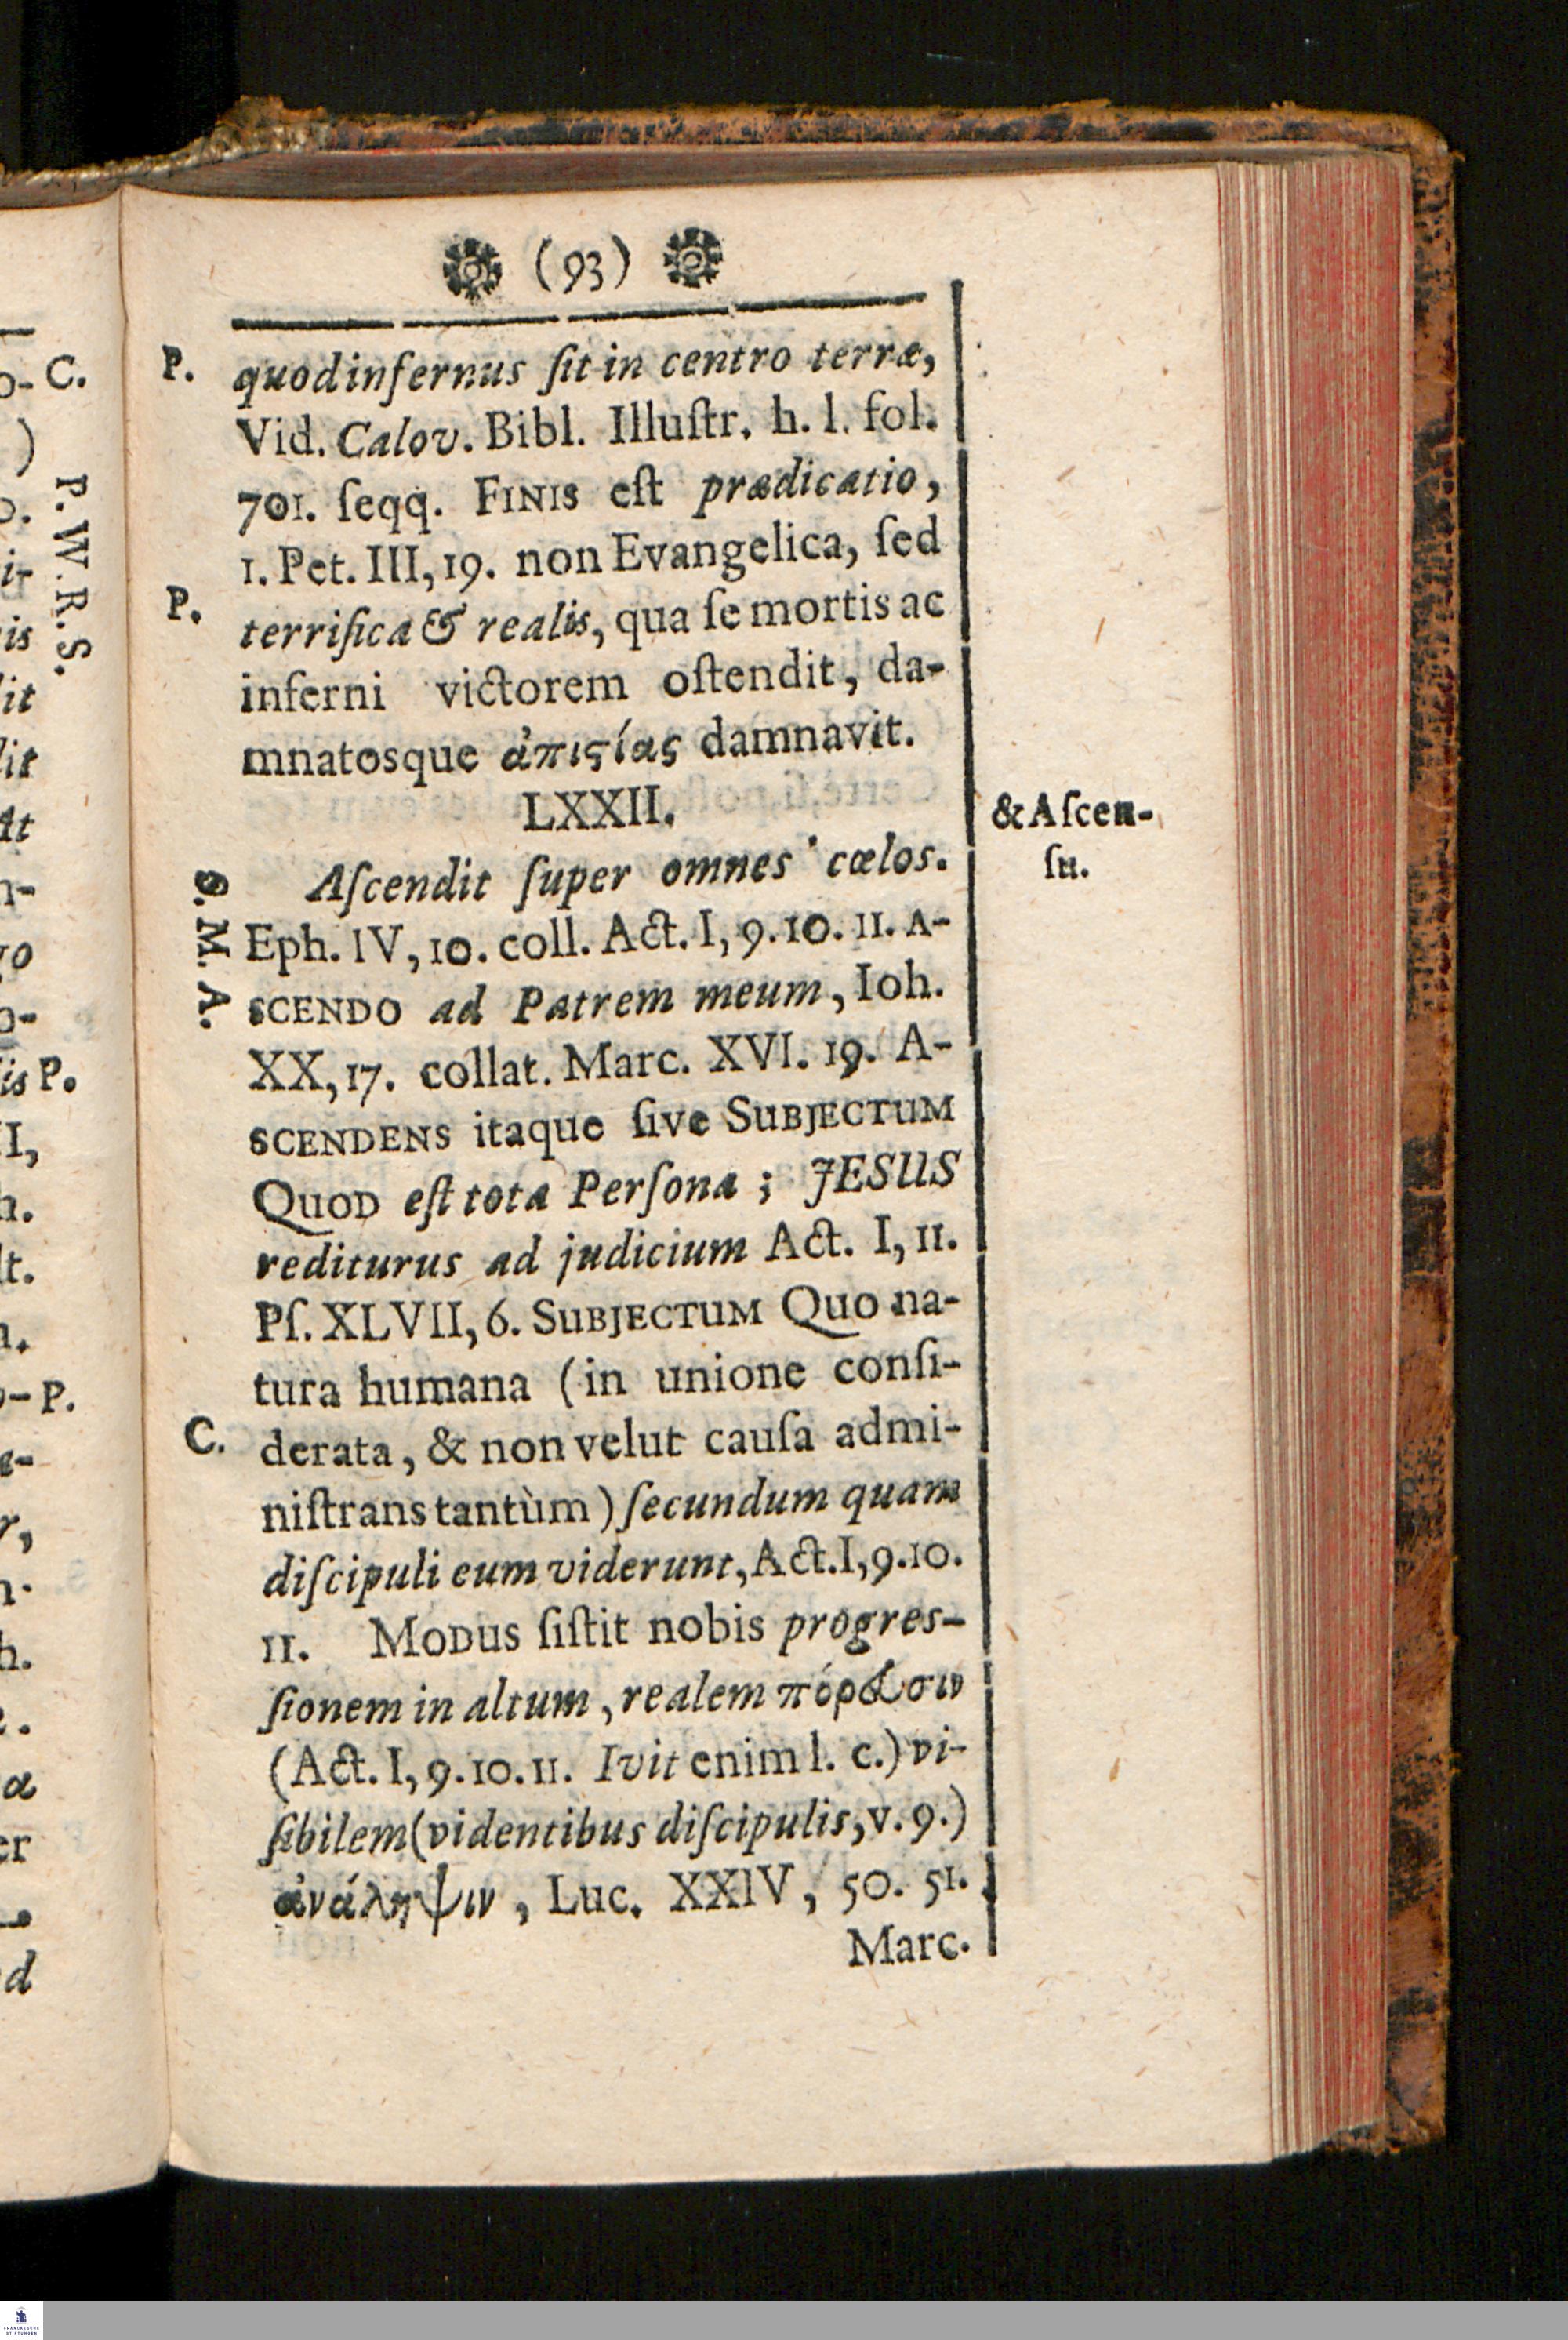 (93)
P. quod infernus ſit in centro terræ,
Vid. Calov. Bibl. Illuſtr. h. l. fol.
701. ſeqq. FINIS eſt prædicatio,
1. Pet. III, 19. non Evangelica, ſed
P. terrifica & realis, qua ſe mortis ac
inferni victorem oſtendit, da-
mnatosque ἀπιςίας damnavit.
LXXII.
& Aſcen-
ſu.
Aſcendit ſuper omnes cœlos.
M. A.
Eph. IV, 10. coll. Act. I, 9. 10. 11. A-
SCENDO ad Patrem meum, Ioh.
XX, 17. collat. Marc. XVI. 19. A-
SCENDENS itaque ſive SUBJECTUM
QUOD eſt tota Perſona; JESUS
rediturus ad judicium Act. I, 11.
Pſ. XLVII, 6. SUBJECTUM Quo na-
tura humana (in unione conſi-
C. derata, & non velut cauſa admi-
niſtrans tantùm) ſecundum quam
diſcipuli eum viderunt, Act. I, 9. 10.
11. MODUS ſiſtit nobis progres-
ſionem in altum, realem πόρευσιν
(Act. I, 9. 10. 11. Ivit enim l. c.) vi-
ſibilem (videntibus diſcipulis, v. 9.)
ἀνάληψιν, Luc. XXIV, 50. 51.
Marc.
C.
P. W. R. S.
P.
P.
FRANCKESCHE
STIFTUNGEN